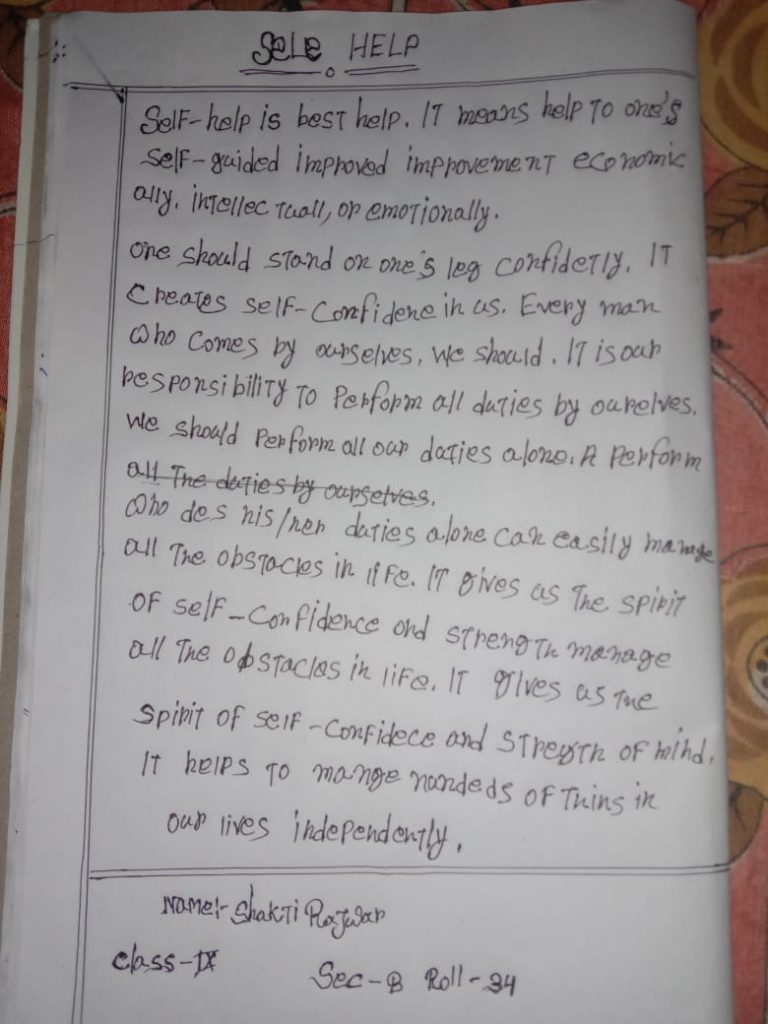 Sele HELP
Self-help is best help. It means help to one's
self-guided improved improvement economic
ally, intellectuall, or emotionally.
One should stand on one's leg confidetly. It
creates self-confidene in us. Every man
who comes by ourselves, we should. It is our
responsibility to perform all duties by ourelves.
We should perform all our duties alone. A perform
all the duties by ourselves.
who des his/her duties alone can easily manage
all the obstacles in life. It gives as the spirit
of self-confidence and strength manage
all the obstacles in life. It gives as the
spirit of self-confidece and streygth of mind.
It helps to mange nundeds of thins in
our lives independently.
Name:- Shakti Rajwar
Class-IX
Sec-B Roll-34